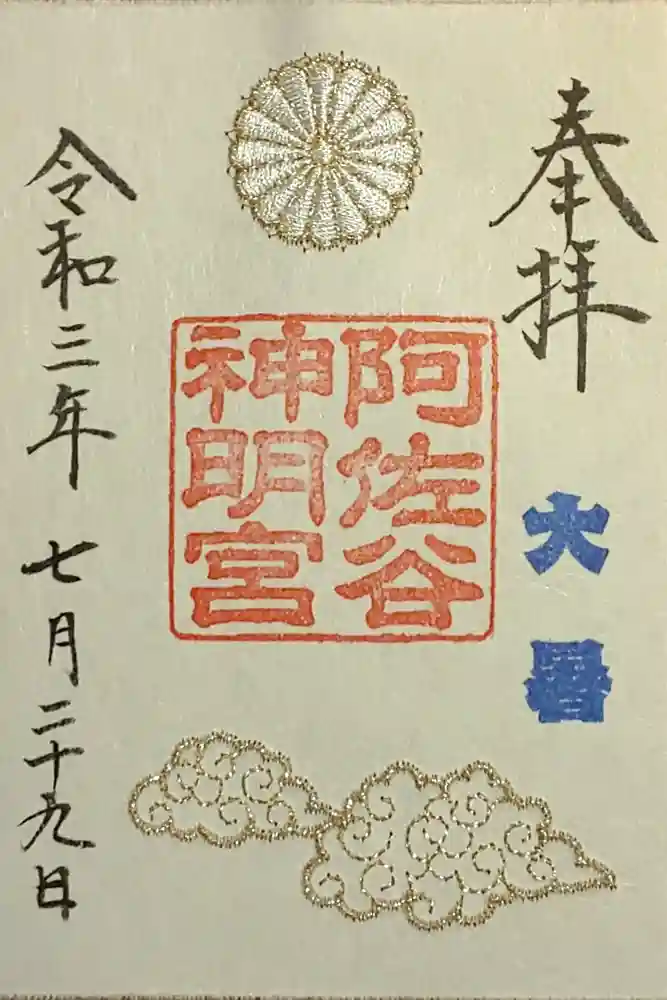 奉拝
大暑
阿佐谷
神明宮
令和三年 七月二十九日